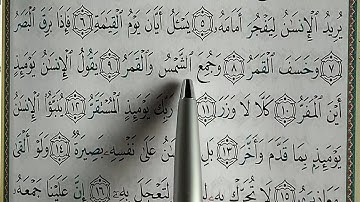 يُرِيدُ ٱلْإِنسَٰنُ لِيَفْجُرَ أَمَامَهُۥ ٥ يَسْـَٔلُ أَيَّانَ يَوْمُ ٱلْقِيَٰمَةِ ٦ فَإِذَا بَرِقَ ٱلْبَصَرُ
٧ وَخَسَفَ ٱلْقَمَرُ ٨ وَجُمِعَ ٱلشَّمْسُ وَٱلْقَمَرُ ٩ يَقُولُ ٱلْإِنسَٰنُ يَوْمَئِذٍ
أَيْنَ ٱلْمَفَرُّ ١٠ كَلَّا لَا وَزَرَ ١١ رَبِّكَ يَوْمَئِذٍ ٱلْمُسْتَقَرُّ ١٢ يُنَبَّؤُا۟ ٱلْإِنسَٰنُ
يَوْمَئِذٍۭ بِمَا قَدَّمَ وَأَخَّرَ ١٣ بَلِ عَلَىٰ نَفْسِهِۦ بَصِيرَةٌ ١٤ وَلَوْ أَلْقَىٰ
مَعَاذِيرَهُۥ ١٥ لَا تُحَرِّكْ بِهِۦ لِتَعْجَلَ بِهِۦٓ ١٦ إِنَّ عَلَيْنَا جَمْعَهُۥ